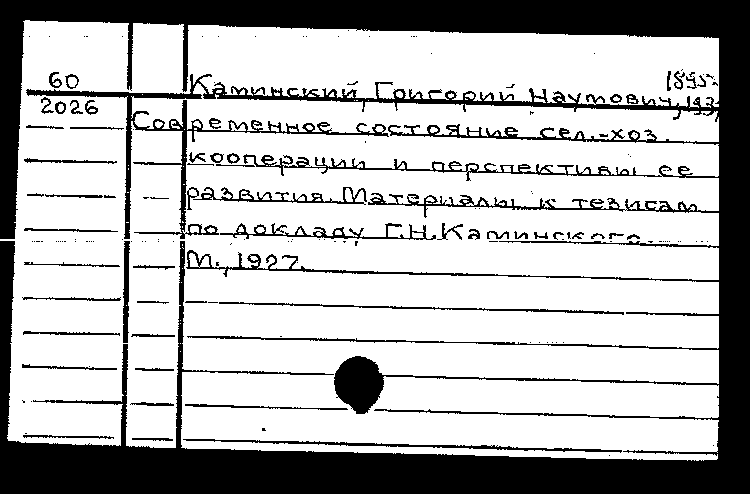 1895-
60 Каминский, Григорий Наумович, 193
2026 Современное состояние сел.-хоз.
кооперации и перспективы ее
развития. Материалы к тезисам
по докладу Г.Н.Каминского.
М., 1927.